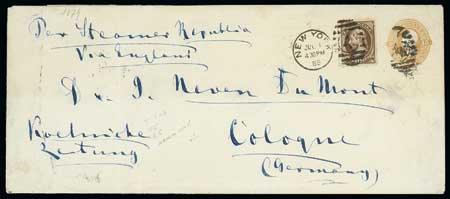 Per Steamer Republic
Via England
NEW YORK
JUL
4 30 PM
88
Dr. J. Neven Du Mont
Koelnische
Zeitung
Cologne
(Germany)